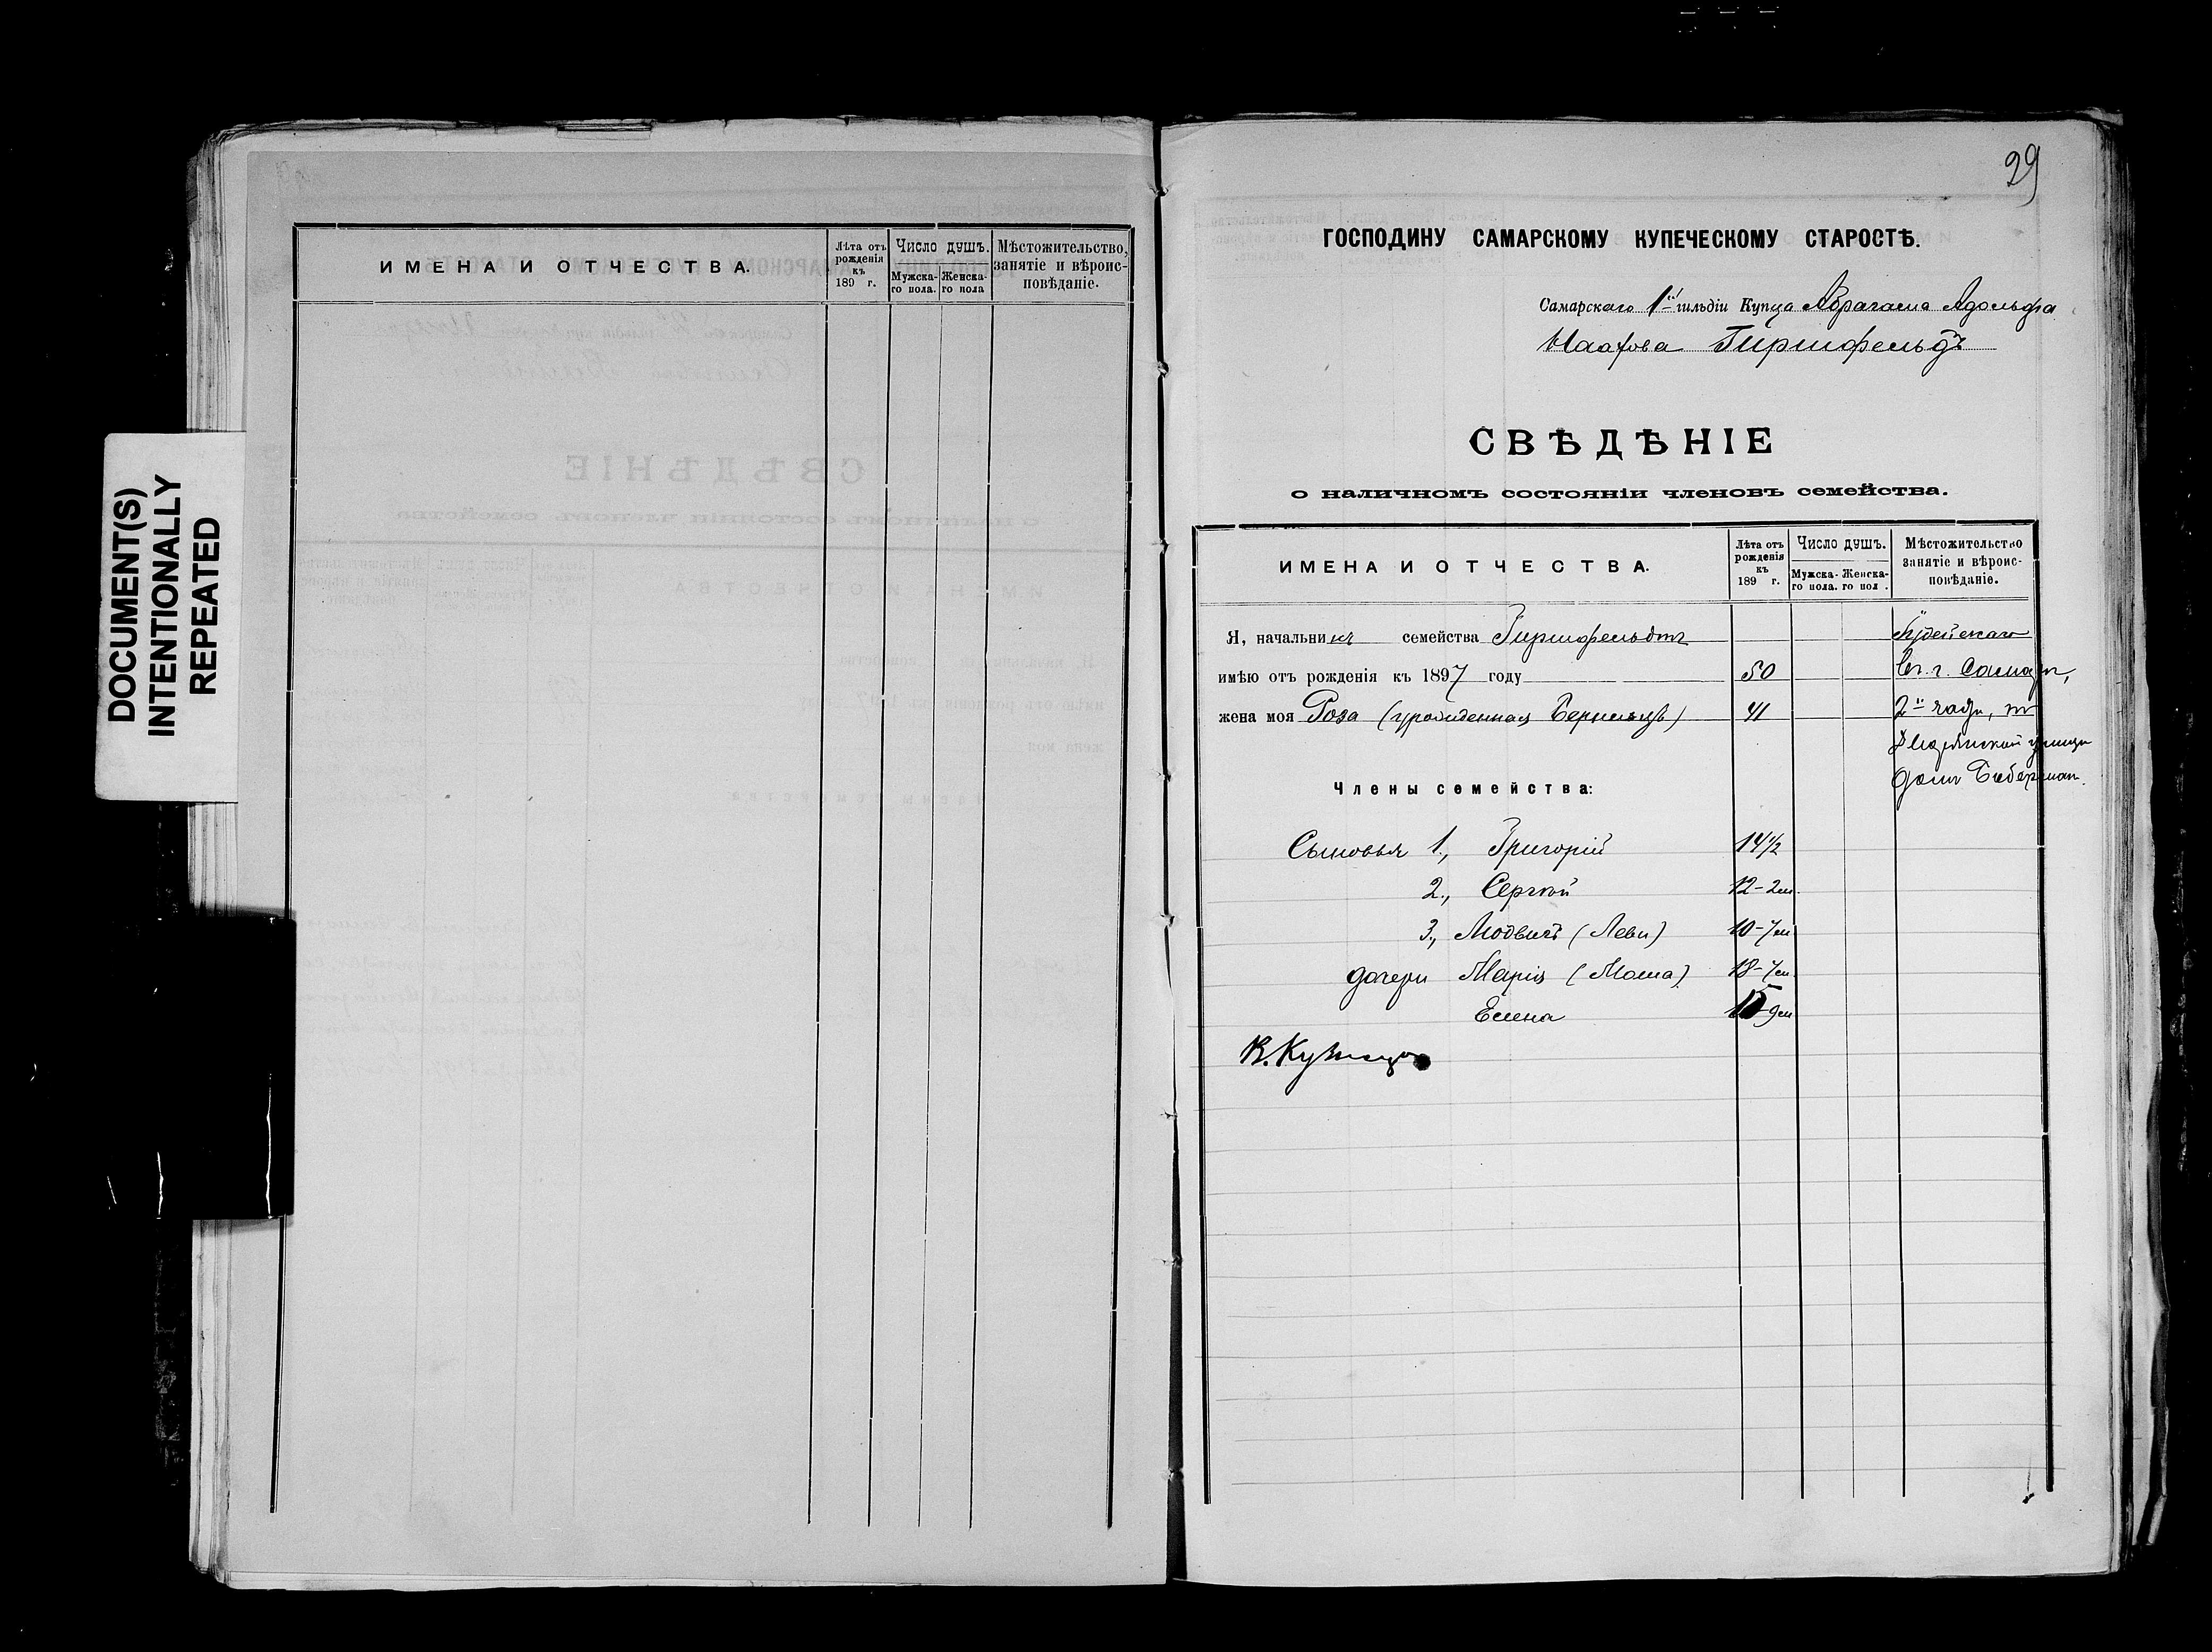 DOCUMENT(S)
INTENTIONALLY
REPEATED
ИМЕНА И ОТЧЕСТВА.
Лѣта отъ
рожденія
къ
189 г.
Число душъ.
Мужска-
го пола.
Женска-
го пола
Мѣстожительство,
занятіе и вѣроис-
повѣданіе.
29
ГОСПОДИНУ САМАРСКОМУ КУПЕЧЕСКОМУ СТАРОСТѢ.
Самарскаго 1й гильдіи Купца Абрагама Адольфа
Гиршфельдъ
СВѢДѢНІЕ
о наличномъ состояніи членовъ семейства.
ИМЕНА И ОТЧЕСТВА.
Лѣта отъ
рожденія
къ
189 г.
Число душъ.
Мужска-
го пола.
Женска-
го пол .
Мѣстожительство
занятіе и вѣроис-
повѣданіе.
Я, начальникъ семейства Гиршфельдтъ Іудейскаго
имѣю отъ рожденія къ 1897 году 50 Въ г. Самарѣ,
жена моя Роза (урожденная 41 2й части, по
улицѣ
домъ
Члены семейства:
Сыновья 1., Григорій 14 1/2
2., Сергѣй 12-2м.
3., Людвигъ (Леви) 10-7м
дочери Марія (Маша) 18-7м.
Елена 15-9м
В. Кузнецов